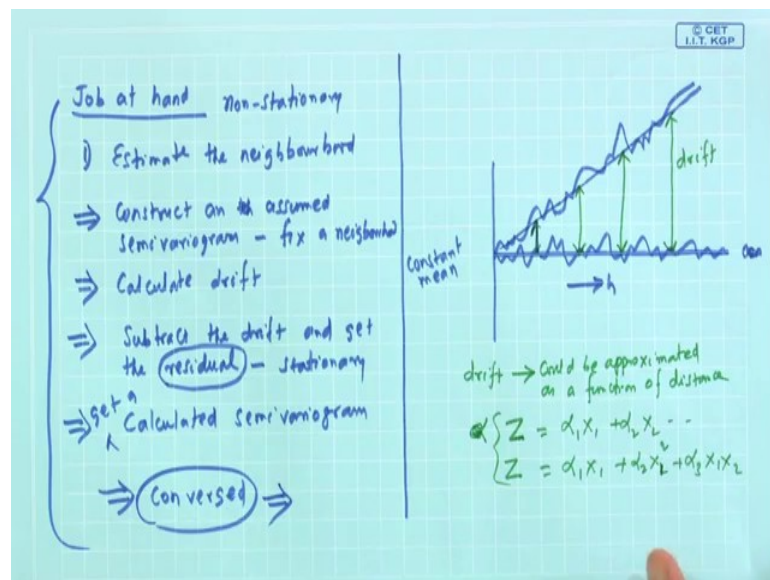 © CET
I.I.T. KGP
Job at hand non-stationary
1) Estimate the neighbourhood
⇒ Construct an assumed
semivariogram - fix a neighbourhood
⇒ Calculate drift
⇒ Subtract the drift and get
the residual - stationary
⇒ get a Calculated semivariogram
⇒ Conversed ⇒
constant
mean
drift
→ h
drift → Could be approximated
as a function of distance
Z = α₁x₁ + α₂x₂ ..
Z = α₁x₁ + α₂x₂² + α₃x₁x₂